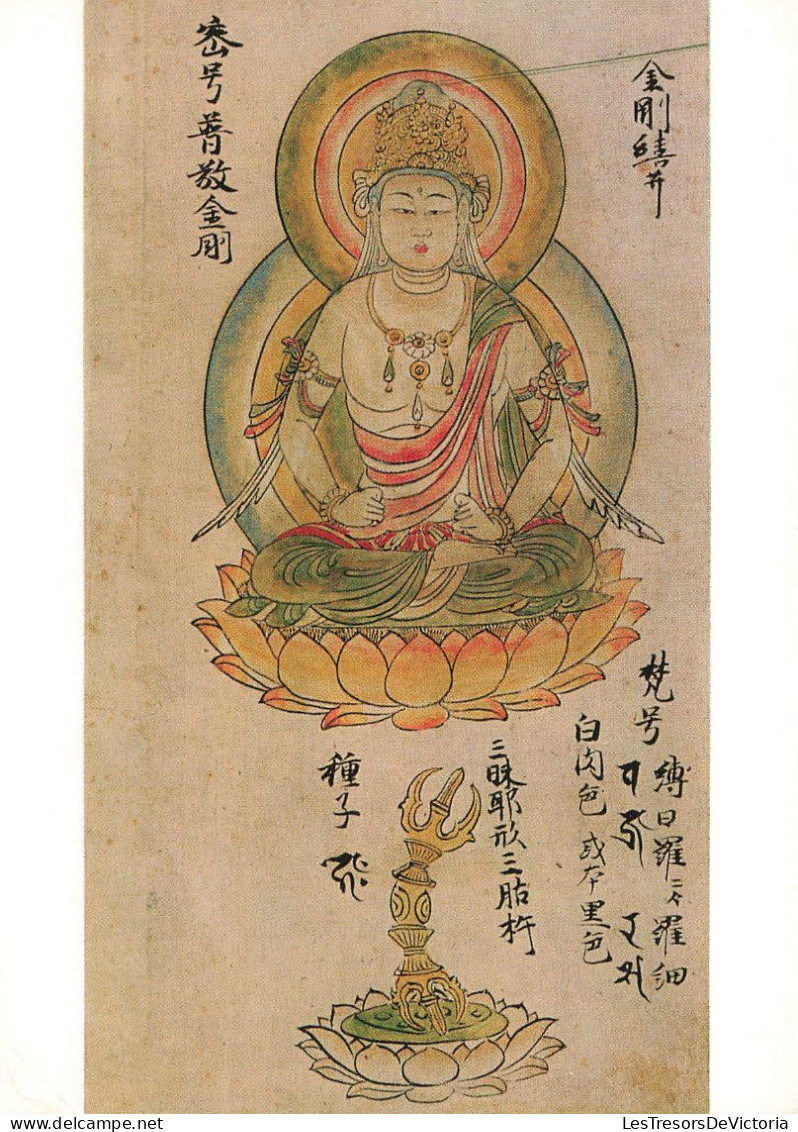 金剛嬉井
密号普敬金剛
梵号
縛日羅二合羅細
白肉色或本黒色
三昧耶形三胋杵
種子
LesTresorsDeVictoria